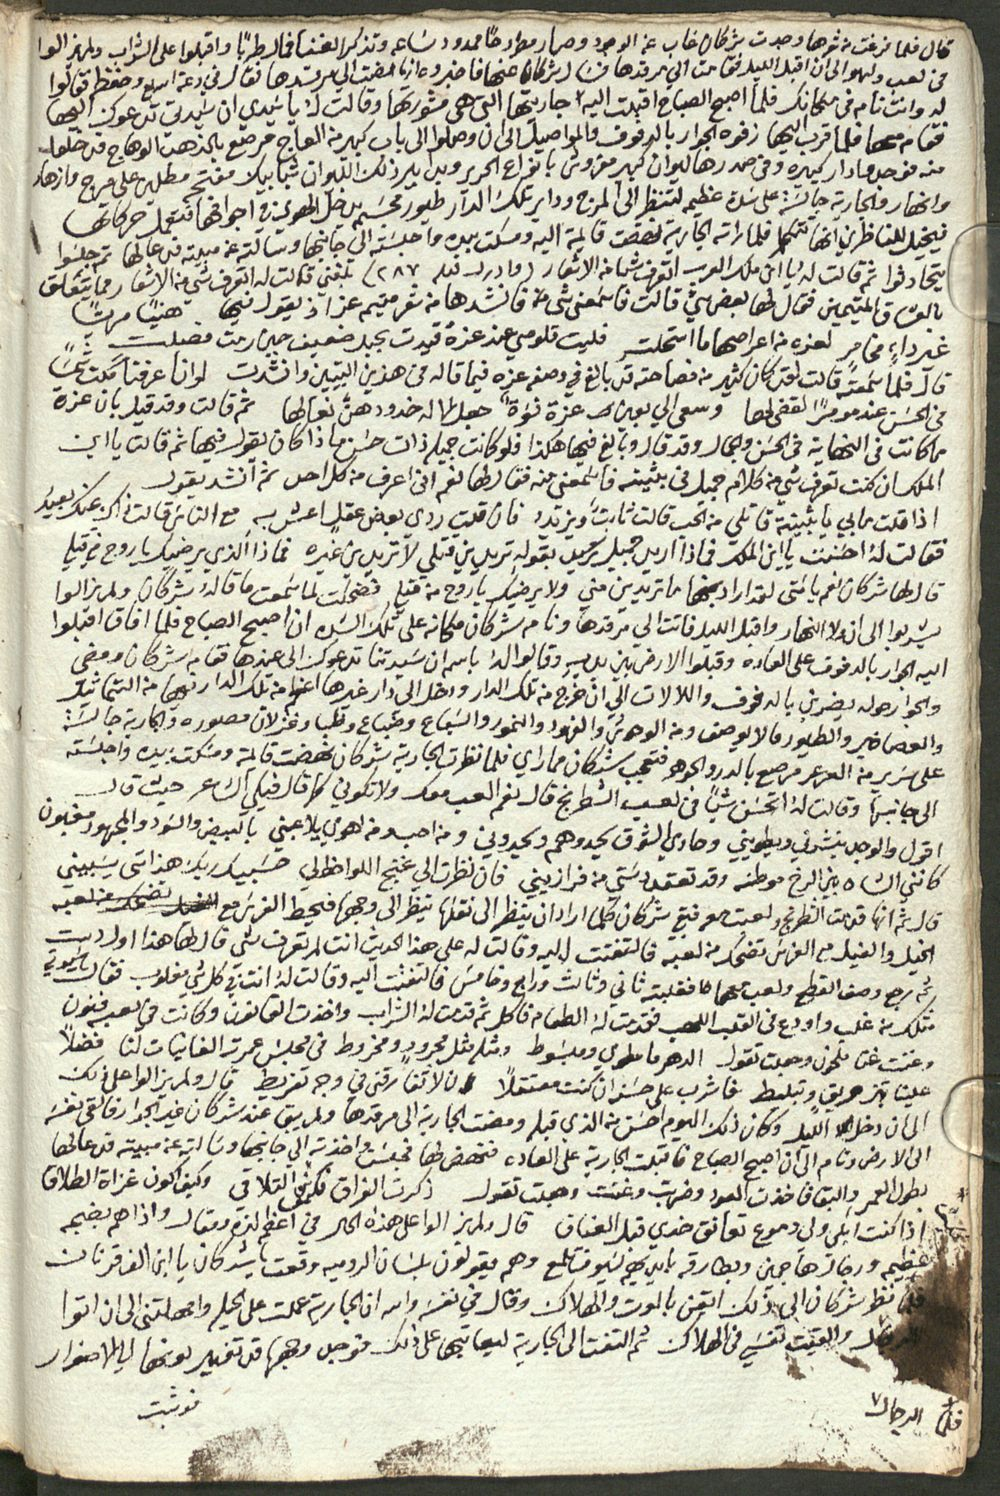 قال فلما فرغت من شعرها وجدت شركان غاب عن الوجود وصار مطروحًا ممدود ساعه وتذكر الغنا فمال طربًا واقبلوا على الشراب ولم يزالوا
في لعب ولهو الى ان اقبل الليل فقامت الي مرقدها فسال شركان عنها فاخبروه انها مضت الي مرقدها فقال في دعة الله وحفظه فقالوا
له وانت نام في مكانك فلما اصبح الصباح اقبلت اليه جاريتها التي هي مشورتها وقالت له يا سيدي ان سيدتي تدعوك اليها
فقام معها فلما قرب اليها زفوه الجوار بالدفوف والمواصيل الى ان وصلوا الى باب كبير من العاج مرصع بالذهب الوهاج فدخلوا
منه فوجدوا دار كبيره وفي صدرها ليوان كبير مفروش بانواع الحرير وبدايير ذلك الليوان شبابيك مفتح مطلين على مروج وازهار
وانهار والجارية جالسة على سدة عظيمه تنتظر الى المرج وداير تلك الدار طيور مجسم يدخل الهوى في اجوافها فتعمل حركاتها
فيخيل للناظرين انها تتكلم فلما راته الجارية نهضت قايمة اليه ومسكت بيده واجلسته الى جانبها وسالته عن مبيته فدعا لها ثم جلسوا
يتحادثوا ثم قالت له يا ابن ملك العرب اتعرف شيا من الاشعار (وادرك ليله ٢٨٧) بلغني قالت له اتعرف شي من الاشعار مما يتعلق
بالعشاق المتيمين فقال لها بعض شي قالت فاسمعني شي منه فانشدها من شعر متيم عزه اذ يقول فيها هنيًا مريًا
غير داءٍ مخامرٍ لعزه من اعراضها ما استحلت فليت قلوصي عند عزة قيدت بحبل ضعيف حين رمت فضلت
قال فلما سمعته قالت لقد كان كثير من فصاحته قد بالغ في وصفه عزه فيما قاله في هذين البيتين وانشدت لو ان عزة حاكمت شمس الضحى
في الحسن عند موفق لقضى لها وسعى الي بعيب عزة نسوة جعل الاله خدودهن نعالها ثم قالت وقد قيل بان عزة
ما كانت في النهاية في الحسن والجمال وقد قال وبالغ فيها هكذا فلو كانت جميله ذات حسن ماذا كان يقول فيها ثم قالت يا ابن
الملك ان كنت تعرف شي من كلام جميل في بثينه فاسمعني منه فقال لها نعم اني اعرف من كل احد ثم انشد يقول
اذا قلت ما بي يا بثينة قاتلي من الحب قالت ثابت ويزيد فان قلت ردي بعض عقلي اعش به مع الناس قالت ذاك عنك بعيد
فقالت له احسنت يا ابن الملك فماذا اريد جميل بقوله تريدين قتلي لا تريدين غيره فماذا الذي يرضيك يا روح من قيل
قال لها شركان نعم يا ستي لقد اراد بها ما تريدين مني ولا يرضيك يا روح من قيل فضحكت لما سمعت ما قاله شركان ولم يزالوا
يشربوا الى ان ولا النهار واقبل الليل فاتت الى مرقدها ونام شركان مكانه على تلك السده الى ان اصبح الصباح فلما افاق اقبلوا
اليه الجوار بالدفوف على العاده وقبلوا الارض بين يديه وقالوا له باسم ان سيدتنا تدعوك الى عندها فقام شركان ومضى
والجوار حوله يضربن بالدفوف واللالات الي ان خرج من تلك الدار ودخل الى دار غيرها اعظم من تلك الدار فيها من التماثيل
والعصافير والطيور ما لا يوصف ومن الوحوش والفهود والنمور والسباع وضباع وظبا وغزلان مصوره والجارية جالسة
على سرير من العرعر مرصع بالدر والجوهر فتعجب شركان مما راي فلما نظرت الجارية شركان نهضت قايمة ومسكت بيده واجلسته
الى جانبها وقالت له اتحسن شيًا في لعب الشطرنج قال نعم العب معك ولا تكوني كما قال فيك الشاعر حيث قال
اقول والوجد ينشرني ويطويني وحادي الشوق يحدوهم ويحدوني ومن احب من لهوي يلاعبني بالبيض والسود والمجهود مغبون
كانني الشاه بين الرخ موطنه وقد تعقد دستي من فرازيني فان نظرت الي غنج اللواحظ لي حسيبك ربك هذا شي يسبيني
قال ثم انها قدمت الشطرنج ولعبت معه فبقي شركان كلما اراد ان ينظر الى نقلها ينظر الى وجهها فيحط الفرس مع
الخيل والفيل مع الفرس تضحك من لعبه فالتفتت اليه وقالت له على هذا الحديث انت لم تعرف شي قال لها هذا اول دست
ثم رجع وصف القطع ولعب معها فغلبته ثاني وثالث ورابع وخامس فالتفتت اليه وقالت له انت في كل شي مغلوب فقال يا ستي
مثلك من غلب واودع في القلب اللهب فقدمت له الطعام فاكل ثم قدمت له الشراب واخذت القانون وكانت في لعبه فنون
وغنت غنا ملحون وجعلت تقول الدهر ما مطوي ومبسوط ومثله مثل مجرورٍ ومخروط في مجلس عمرت الغانيات لنا فضلاً
علينا بتزويق وتبليط فاشرب على حسنه ان كنت معتقلاً ان لا تفارقني في وجه تفريط قال ولم يزالوا على ذلك
الى ان دخل الليل وكان ذلك اليوم احسن من الذي قبله ومضت الجارية الى مرقدها ولم يبق عند شركان غير الجوار فالقى نفسه
الى الارض ونام الى ان اصبح الصباح فاقبلت الجارية على العاده فنهض لها فجلست واخذته الي جانبها وسالته عن مبيته فدعا لها
بطول العمر والبقا فاخذت العود وضربت وغنت وجعلت تقول ذكرت الفراق فكيف التلاقي وكيف اكون غزاة الطلاق
اذا كنت ابكى ولي دموع تعانق خدي قبل العناق قال ولم يزالوا على هذه الحال في اعظم لذة ومقال واذا هم بضجه
عظيمه ورجال هاجمين وبطارقه بايديهم السيوف تلمع وهم يقولون بلسان الروميه وقعت يا شركان يا ابن القرنان
فلما نظر شركان الى ذلك ايقن بالموت والهلاك وقال في نفسه والله ان الجارية عملت علي الحيله وامهلتني الى ان اتوا
الرجال والقيت نفسي في الهلاك ثم التفت الى الجارية ليعاتبها على ذلك فوجد وجهها قد تغير لونها الي الاصفرار
فلما الرجال
فوثبت